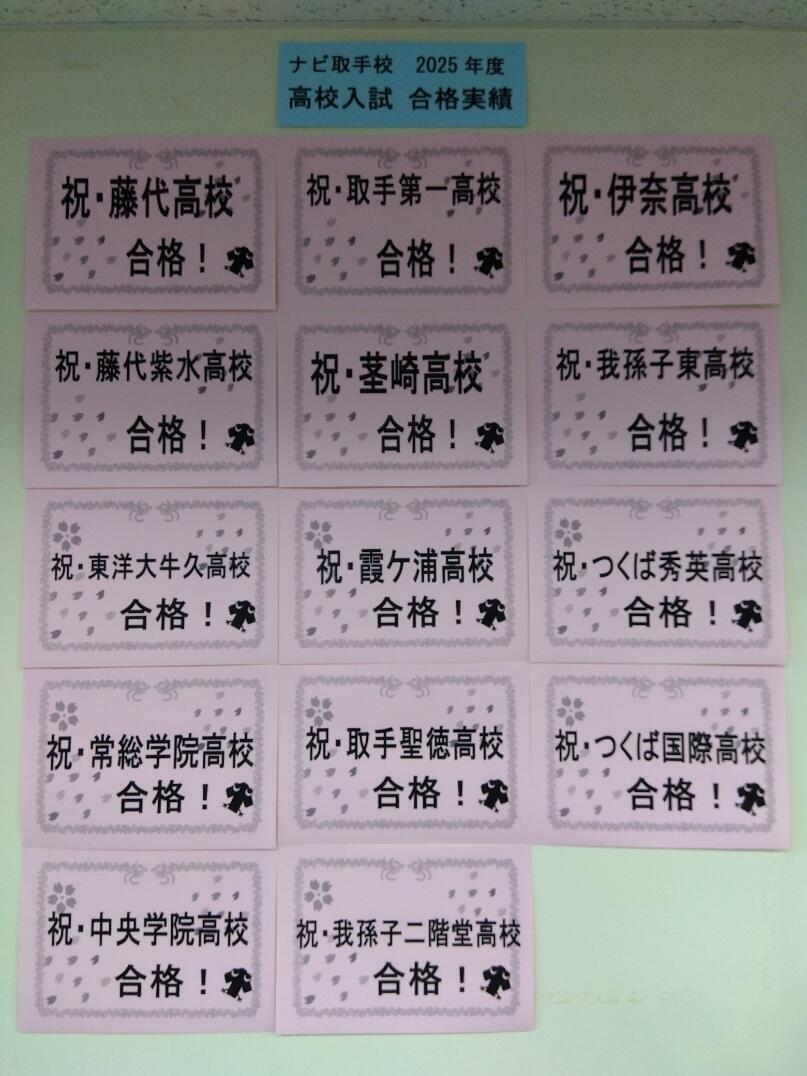 ナビ取手校　2025年度
高校入試 合格実績
祝・藤代高校
合格！
祝・取手第一高校
合格！
祝・伊奈高校
合格！
祝・藤代紫水高校
合格！
祝・茎崎高校
合格！
祝・我孫子東高校
合格！
祝・東洋大牛久高校
合格！
祝・霞ケ浦高校
合格！
祝・つくば秀英高校
合格！
祝・常総学院高校
合格！
祝・取手聖徳高校
合格！
祝・つくば国際高校
合格！
祝・中央学院高校
合格！
祝・我孫子二階堂高校
合格！